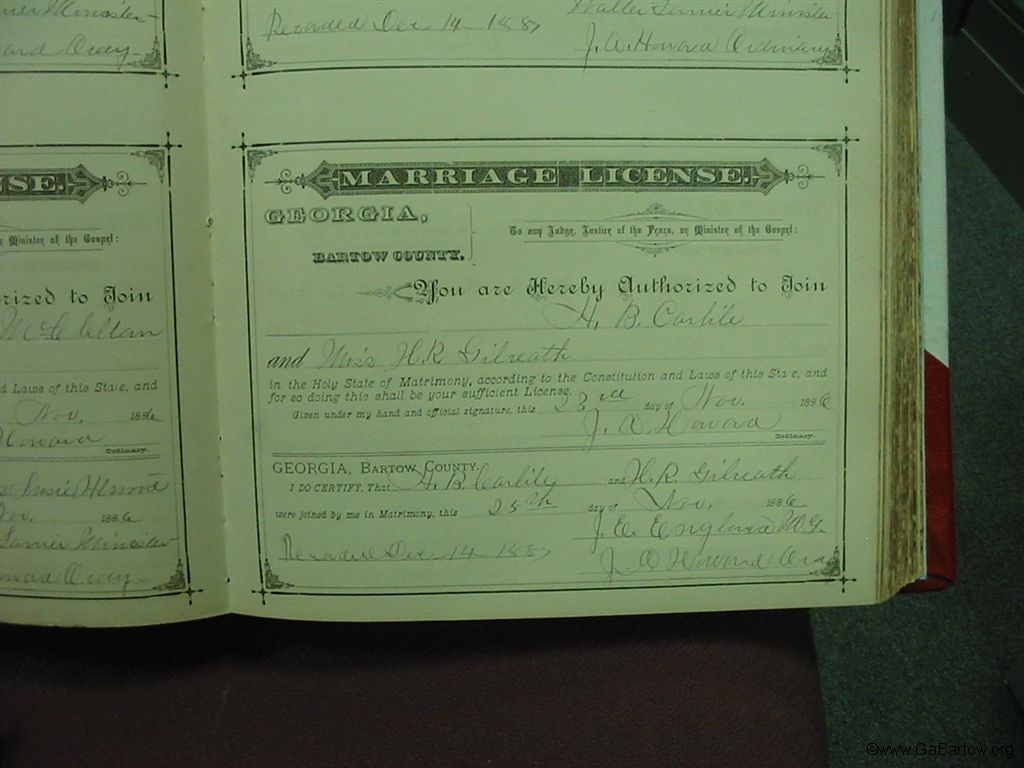 Minister
Recorded Dec 14 1887
Walter Lanier Minister
J. A. Howard Ordinary
NSE.
Minister of the Gospel:
rized to Join
McClellan
d Laws of this State, and
Nov. 1886
Howard
Ordinary.
Nov. 1886
Lanier Minister
MARRIAGE LICENSE.
GEORGIA,
BARTOW COUNTY.
To any Judge, Justice of the Peace, or Minister of the Gospel:
You are Hereby Authorized to Join
H. B. Carlile
and Miss H. R. Gilreath
in the Holy State of Matrimony, according to the Constitution and Laws of this State, and
for so doing this shall be your sufficient License.
Given under my hand and official signature, this 23rd day of Nov. 1886
J. A. Howard
Ordinary.
GEORGIA, BARTOW COUNTY.
I DO CERTIFY, That H. B. Carlile and H. R. Gilreath
were joined by me in Matrimony, this 25th day of Nov. 1886
J. E. England M.G.
Recorded Dec 14 1887
J. A. Howard Ord
©www.GaBartow.org